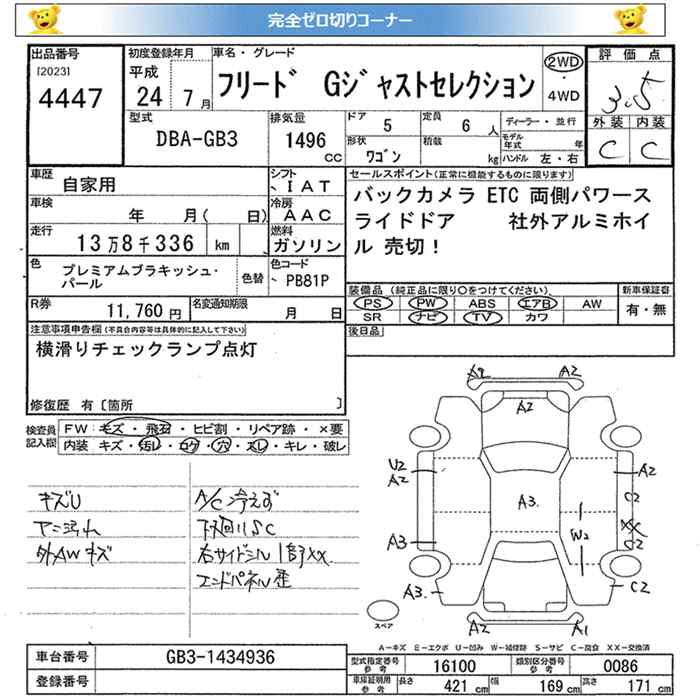 完全ゼロ切りコーナー
出品番号
[2023]
4447
初度登録年月
平成
24 7月
車名・グレード
フリード Gジャストセレクション
2WD
・
4WD
評価点
3.5
外装 内装
C C
型式
DBA-GB3
排気量
1496
cc
ドア 5
定員 6人
形状 ワゴン
積載 kg
ディーラー・並行
モデル年式 年
ハンドル 左・右
車歴 自家用
シフト、IAT
車検 年 月( 日)
冷房 AAC
走行 13万8千336 km
燃料 ガソリン
セールスポイント(正常に機能するものに限ります)
バックカメラ ETC 両側パワース
ライドドア 社外アルミホイ
ル 売切!
色 プレミアムブラキッシュ・
パール
色替
色コード
、PB81P
R券 11,760円
名変通知期限 月 日
装備品 (純正品に限り○をつけてください)
新車保証書
PS PW ABS エアB AW
有・無
SR ナビ TV カワ
後日品
注意事項申告欄(不具合内容等は具体的に記入して下さい)
横滑りチェックランプ点灯
修復歴 有〔箇所 〕
検査員記入欄
FW:キズ・飛石・ヒビ割・リペア跡・×要
内装:キズ・汚レ・コゲ・穴・スレ・キレ・破レ
キズU
ヤニ汚れ
外AWキズ
A/C冷えず
下廻りSC
右サイドシル1部XX.
エンドパネル歪
A2 A2
A2
U2
A2
A2
C2
A3.
XX
C2
W2
A3
A3.
C2
A2 A1
スペア
A-キズ E-エクボ U-凹み W-補修跡 S-サビ C-腐食 XX-交換済
車台番号 GB3-1434936
登録番号
型式指定番号 参考 16100
類別区分番号 参考 0086
車庫証明用 参考
長さ 421 cm
幅 169 cm
高さ 171 cm